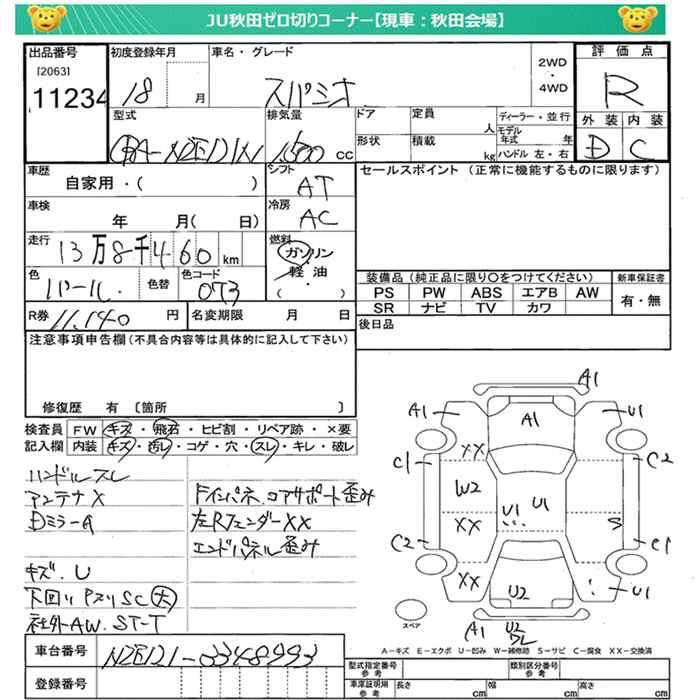 JU秋田ゼロ切りコーナー【現車：秋田会場】
出品番号
[2063]
11234
初度登録年月
18 月
車名・グレード
スパシオ
2WD
・
4WD
評価点
R
外装 内装
D C
型式
CBA-NZE121N
排気量
1,500 cc
ドア
定員
人
形状
積載
kg
ディーラー・並行
モデル年式 年
ハンドル 左・右
車歴
自家用・( )
シフト
AT
セールスポイント (正常に機能するものに限ります)
車検
年 月( 日)
冷房
AC
走行
13万8千460km
燃料
ガソリン
軽油
・
( )
色
パール.
色替
色コード
073
装備品 (純正品に限り〇をつけてください)
新車保証書
PS PW ABS エアB AW
SR ナビ TV カワ
有・無
R券 11,140 円
名変期限 月 日
後日品
注意事項申告欄 (不具合内容等は具体的に記入して下さい)
修復歴 有 〔箇所 〕
検査員 FW キズ・飛石・ヒビ割・リペア跡・×要
記入欄 内装 キズ・汚レ・コゲ・穴・スレ・キレ・破レ
ハンドルスレ
アンテナX
Dミラ-A
キズ.U
下回り PスリSC(大)
社外AW. ST-T
Fインパネ.コアサポート歪み
左Rフェンダ-XX
エンドパネル歪み
A1
A1 A1 U1
C1 XX C2
W2 U1 U1
XX S
C2 C1
XX U2 U1
A1 U2
スペア
A-キズ E-エクボ U-凹み W-補修跡 S-サビ C-腐食 XX-交換済
車台番号 NZE121-3348993
登録番号
型式指定番号
参考
類別区分番号
参考
車庫証明用
参考
長さ cm 幅 cm 高さ cm